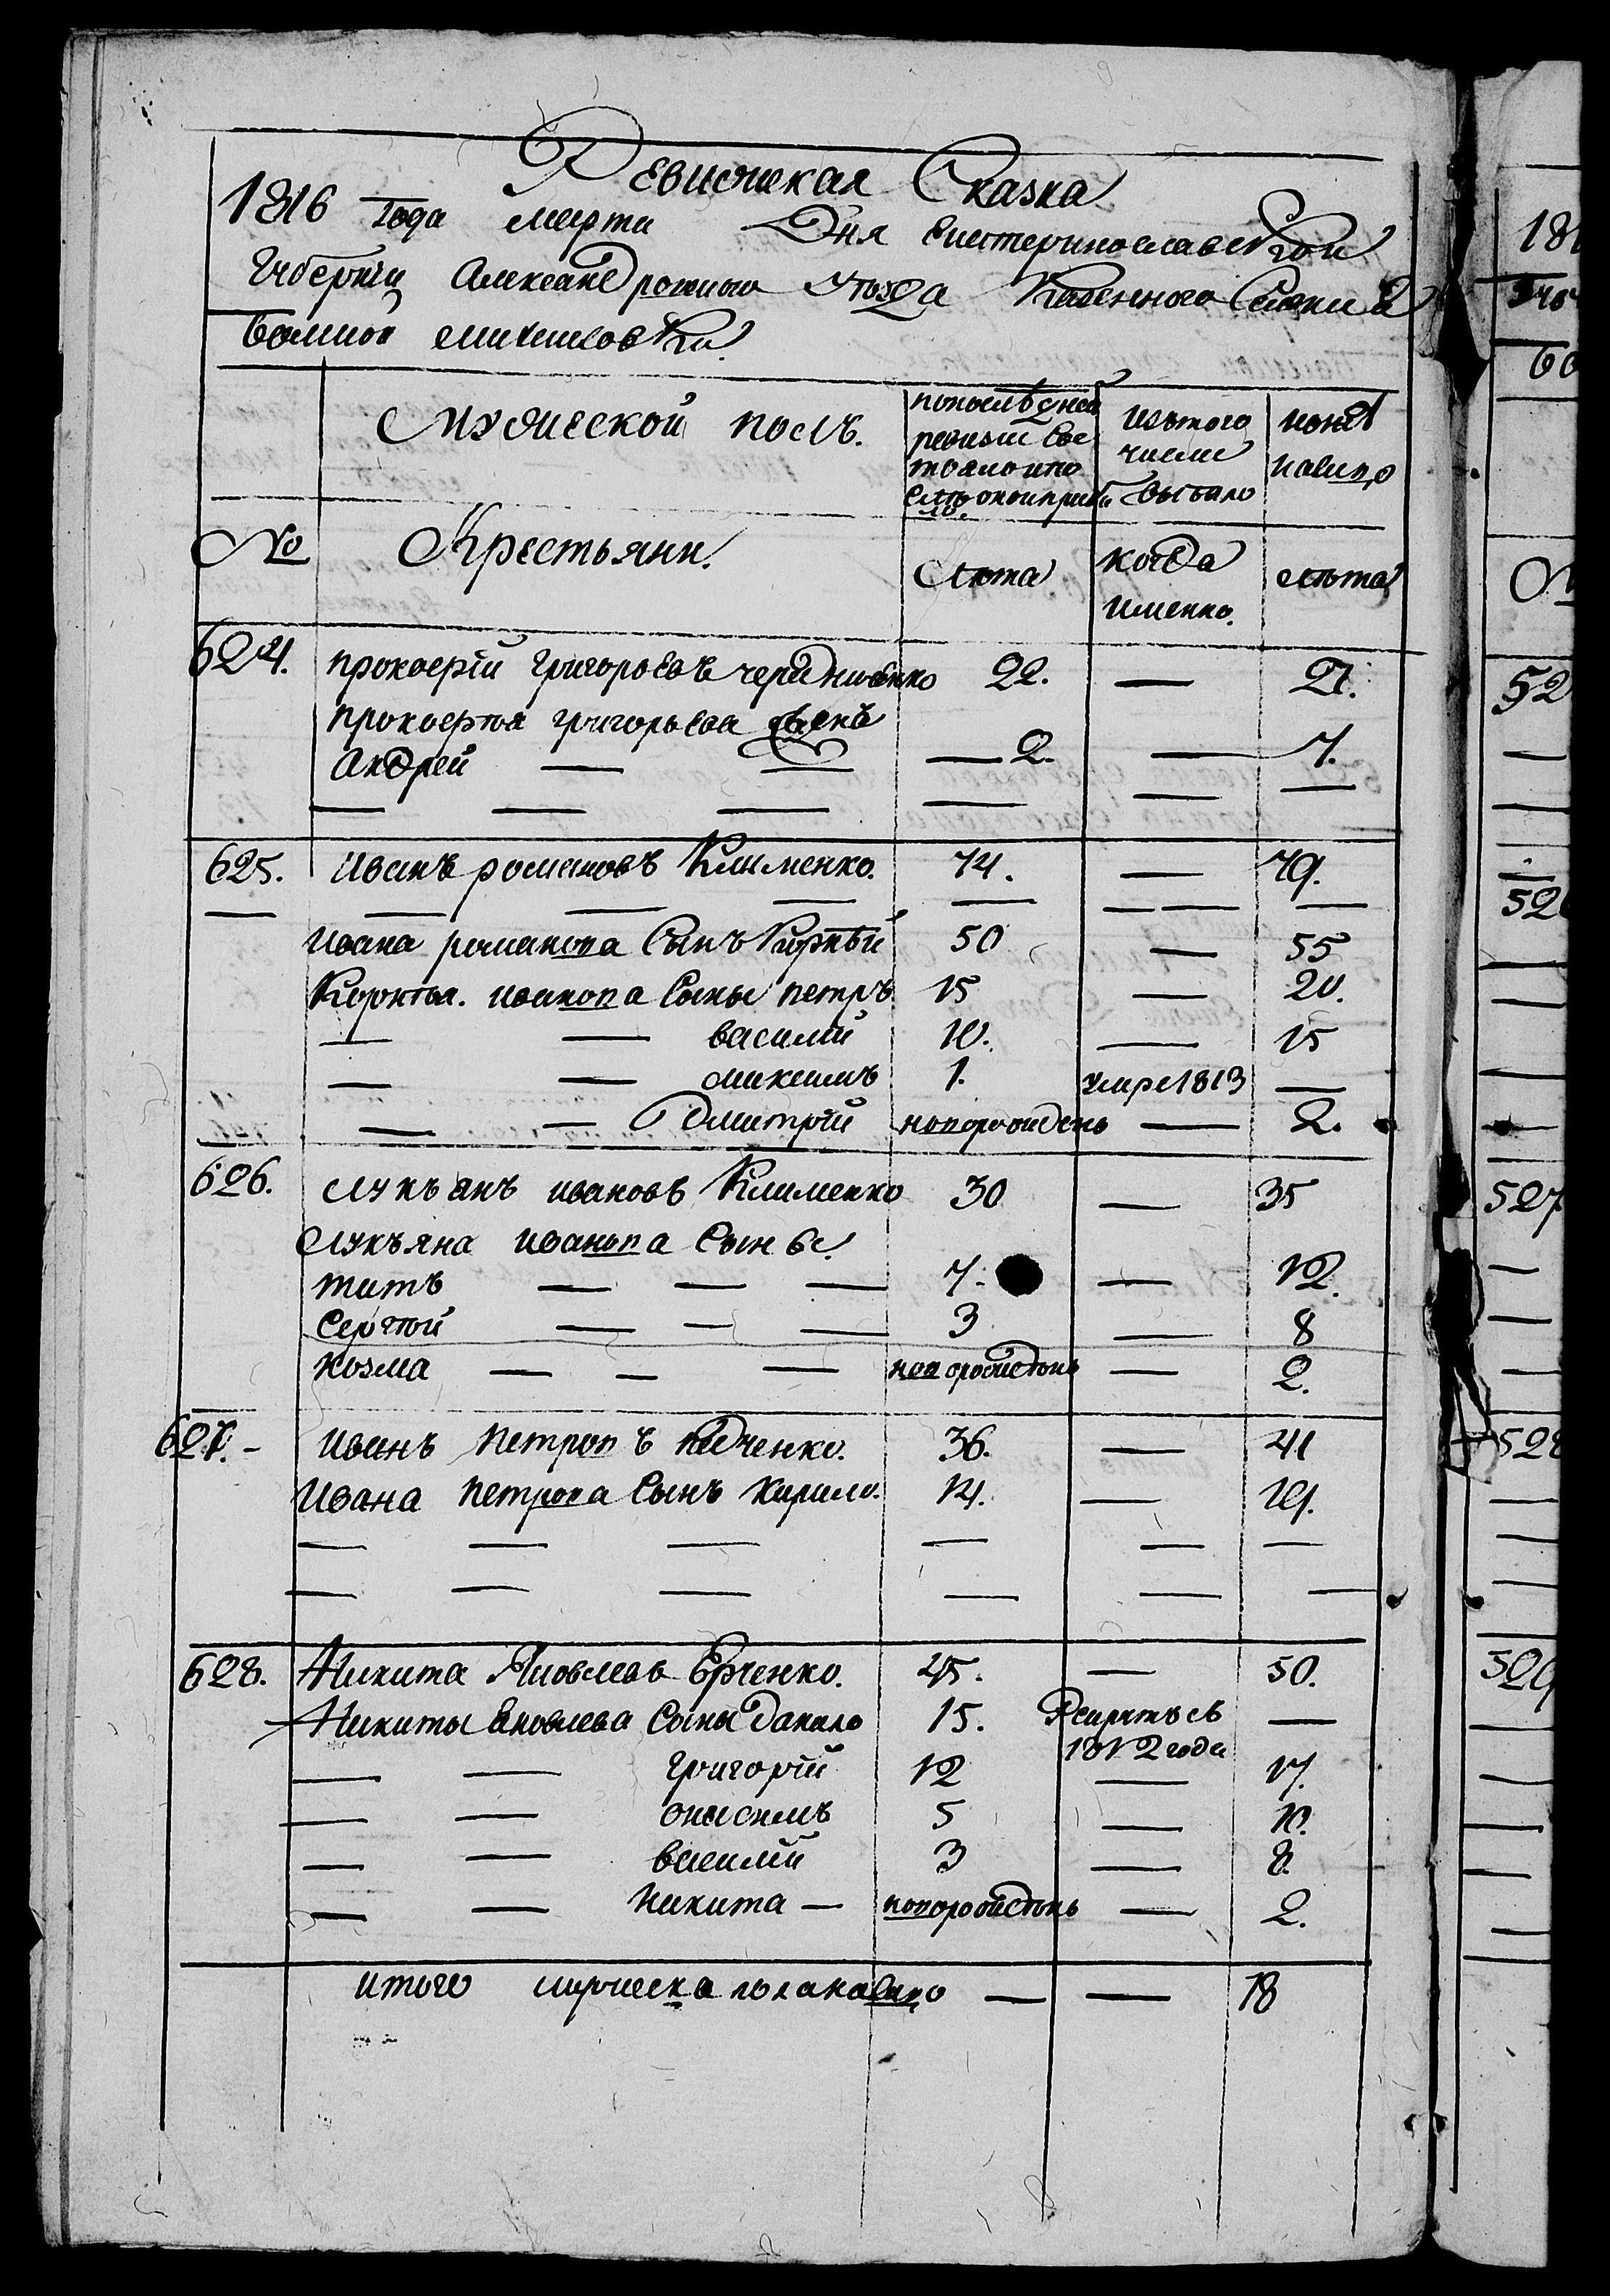 Ревижская Сказка
1816 года марта Дня Екатеринославской
Губернїи Александровского уезда Казенного Селения
Большой михайловки
мужеской полъ.
попослѣдней
ревизїи сос
тояло ипо
слѣ оной прибы
ло.
Изътого
числа
выбыло
ныне
налицо
№
Крестьяни.
лѣта
когда
именно.
лѣта
624. прокофїй григорьевъ чередниченко 22. — 27.
прокофѣя григорьева сынъ
Андрей — — — 2. — 7.
625. Иванъ романовъ Клименко. 74. — 79.
Ивана романова Сынъ Корнѣй 50 — 55
Корнѣя. иванова Сыны петръ 15 — 20.
— — василїй 10. — 15
— — максимъ 1. умре 1813 —
— — Дмитрїй новорожденъ — 2.
626. лукъянъ ивановъ Клименко 30 — 35
лукъяна иванова Сыны.
титъ — — — 7. — 12.
Сергѣй — — — 3 — 8
козма — — — новорожденъ — 2.
627. — иванъ петровъ педченко. 36. — 41
Ивана петрова Сынъ кирило. 14. — 19.
628. Никита Яковлевъ Ерченко. 45. — 50.
Никиты Яковлева Сыны данило 15. —
1812 года
— — григорїй 12 — 17.
— — онисимъ 5 — 10.
— — василїй 3 — 8.
— — никита — новорожденъ — 2.
итого мужеска пола налицо — — 18
181
60
52
526
527
528
529